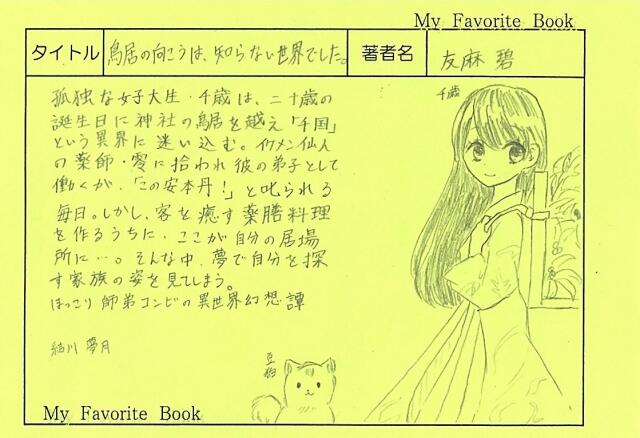 My Favorite Book
タイトル 鳥居の向こうは、知らない世界でした。 著者名 友麻 碧
孤独な女子大生・千歳は、二十歳の
誕生日に神社の鳥居を越え「千国」
という異界に迷い込む。イケメン仙人
の薬師・零に拾われ彼の弟子として
働くが、「この安本丹!」と叱られる
毎日。しかし、客を癒す薬膳料理
を作るうちに、ここが自分の居場
所に…。そんな中、夢で自分を探
す家族の姿を見てしまう。
ほっこり師弟コンビの異世界幻想譚
結川 夢月
千歳
豆狛
My Favorite Book